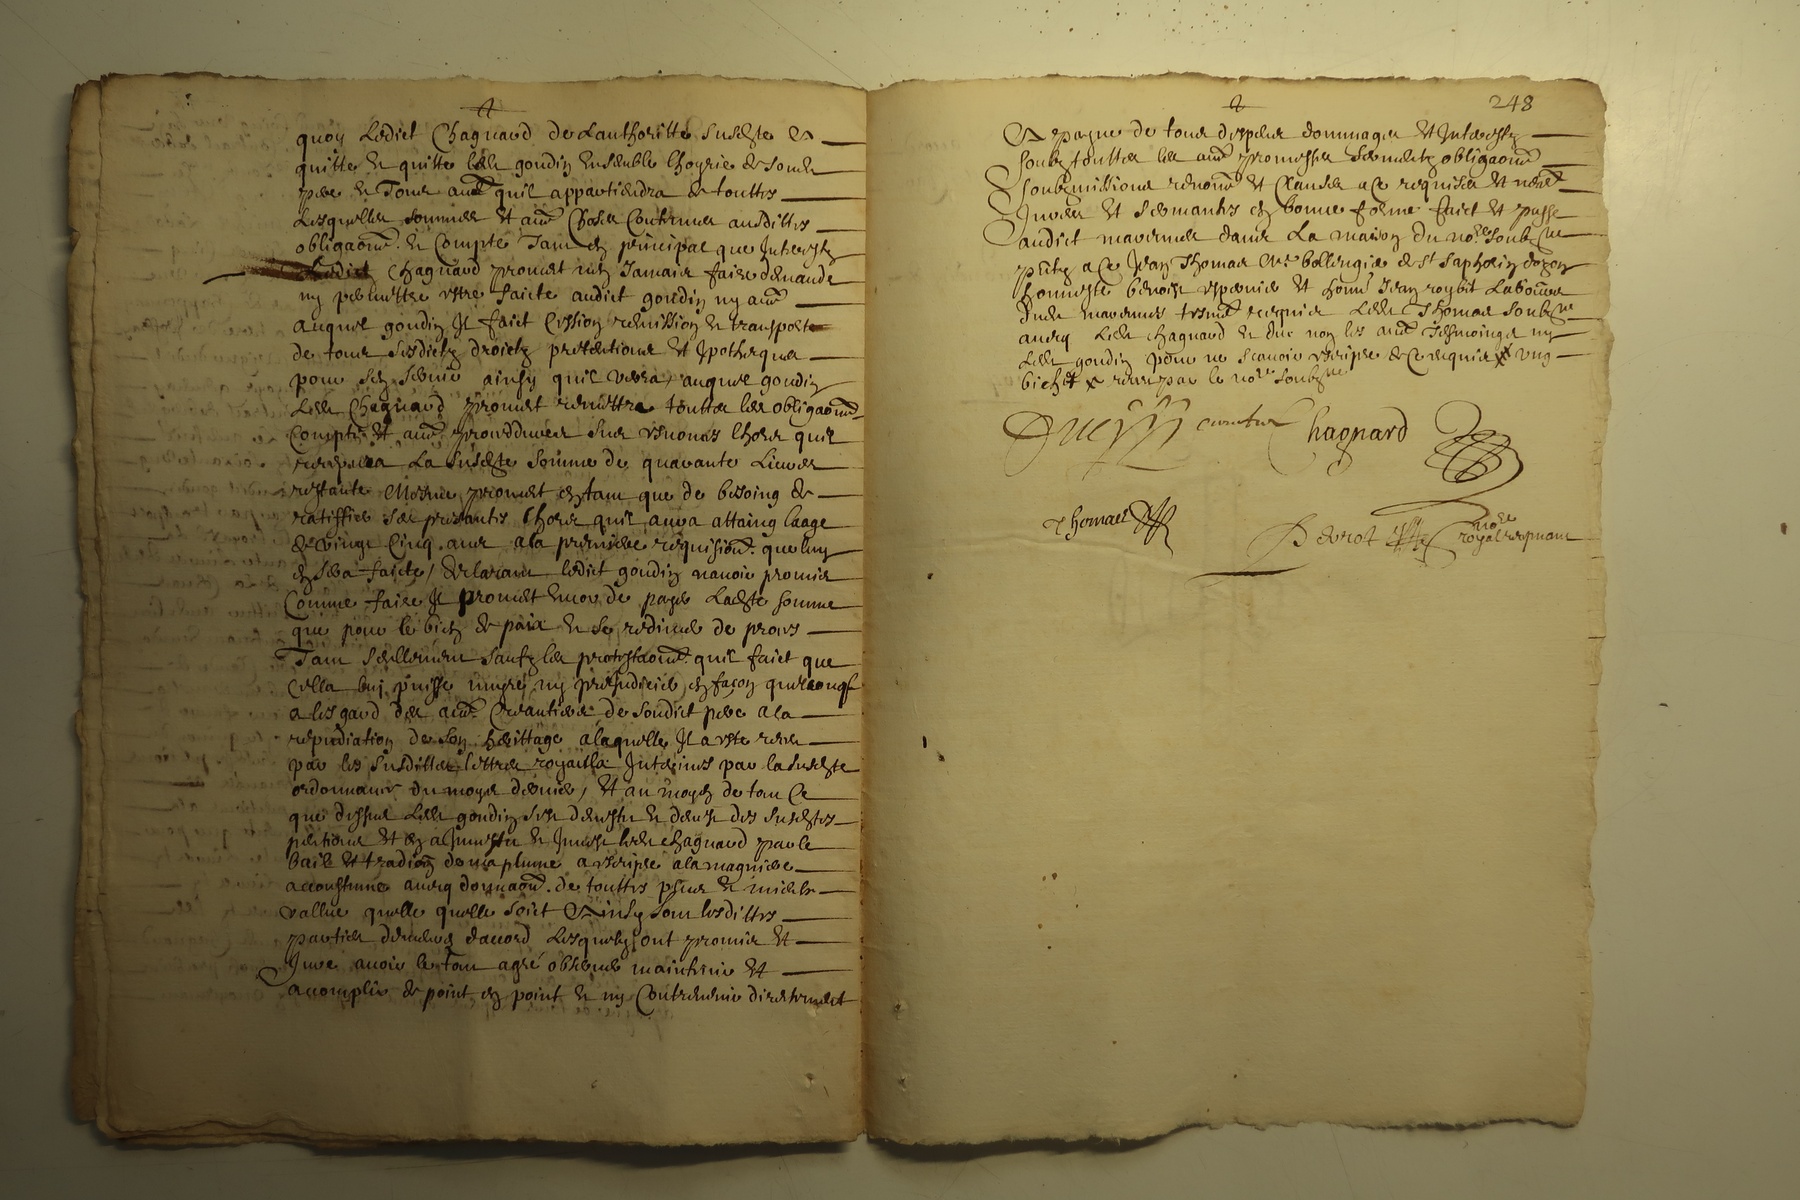 quoy Ledict Chagnard de Lauthoritté susdite &
quitte et quitte ledit goudin Ensemble lhoyrie de sondit
pere et Tous autres quil appartiendra de touttes
Lesquelles sommes et autres Choses Contenues ausdittes
obligaons et Compte Tant en principal que Interestz
Ledict Chagnard promet nen Jamais faire demande
ny permettre estre faicte audict goudin ny autres
Auquel goudin Il faict Cession remission et transporte
de tous sesdictz droictz pretentions et Ipotheques
pour sen servir ainsy quil verra, auquel goudin
Ledit Chagnard promet remettre touttes les obligaons
Compte et autres proceddures sus enonces lhors quil
La susdite somme de quarante Livres
restante Mesme promet entant que de besoing de
ratiffier ses presantes lhors quil aura attaing laage
de vingt Cinq ans ala premiere requision que luy
en sera faicte, declarant ledict goudin navoir promis
Comme faire Il promet encor de payer Ladite somme
que pour le bien de paix et se redimer de proces
Tant seullement saufz les protestaons quil faict que
Cella luy puisse nuyre ny prejudicier en façon quelconque
a lesgard des autres Creantiers de sondict pere ala
repudiation de son herittage alaquelle Il a este receu
par les susdittes lettres royaulx Interines par la susdite
ordonnance du moys dernier, et au moyen de tout Ce
que dessus Ledit goudin sest devestu et devest des susdites
et en a Investu et Invest ledit chagnard par le
bail et tradion de ma plume a escripre ala magniere
accoustumee avecq donnaon de touttes plus et mieulx
vallue quelle quelle soict Et Ainsy sont lesdittes
parties demeures daccord Lesquelz ont promis et
Jure avoir le tout agré observer maintenir et
accomplir de point en point et ny Contrevenir directement
248
A payne de tous despens dommages et Interestz
soubz touttes les autres promesses sermentz obligaons
soubzmissions renons et Clauses a Ce requises et necess
Jurees et sermantes en bonne forme faict et passe
audict mavernes dans La maison du nore soubzne
pntz a Ce Jean Thomas Me bollengier de St Saphorin dozon
honneste benoist et honne Jean roybit Laboureur
dudit mavernes tesmt requis Ledit Thomas soubzne
avecq Ledit chagnard et duc non les autres Tesmoings ny
Ledit goudin pour ne scavoir escripre de Ce requis x ung
bichet x receu par le nore soubzne
Duc curateur Chagnard
Thomas
Perrot nore royal